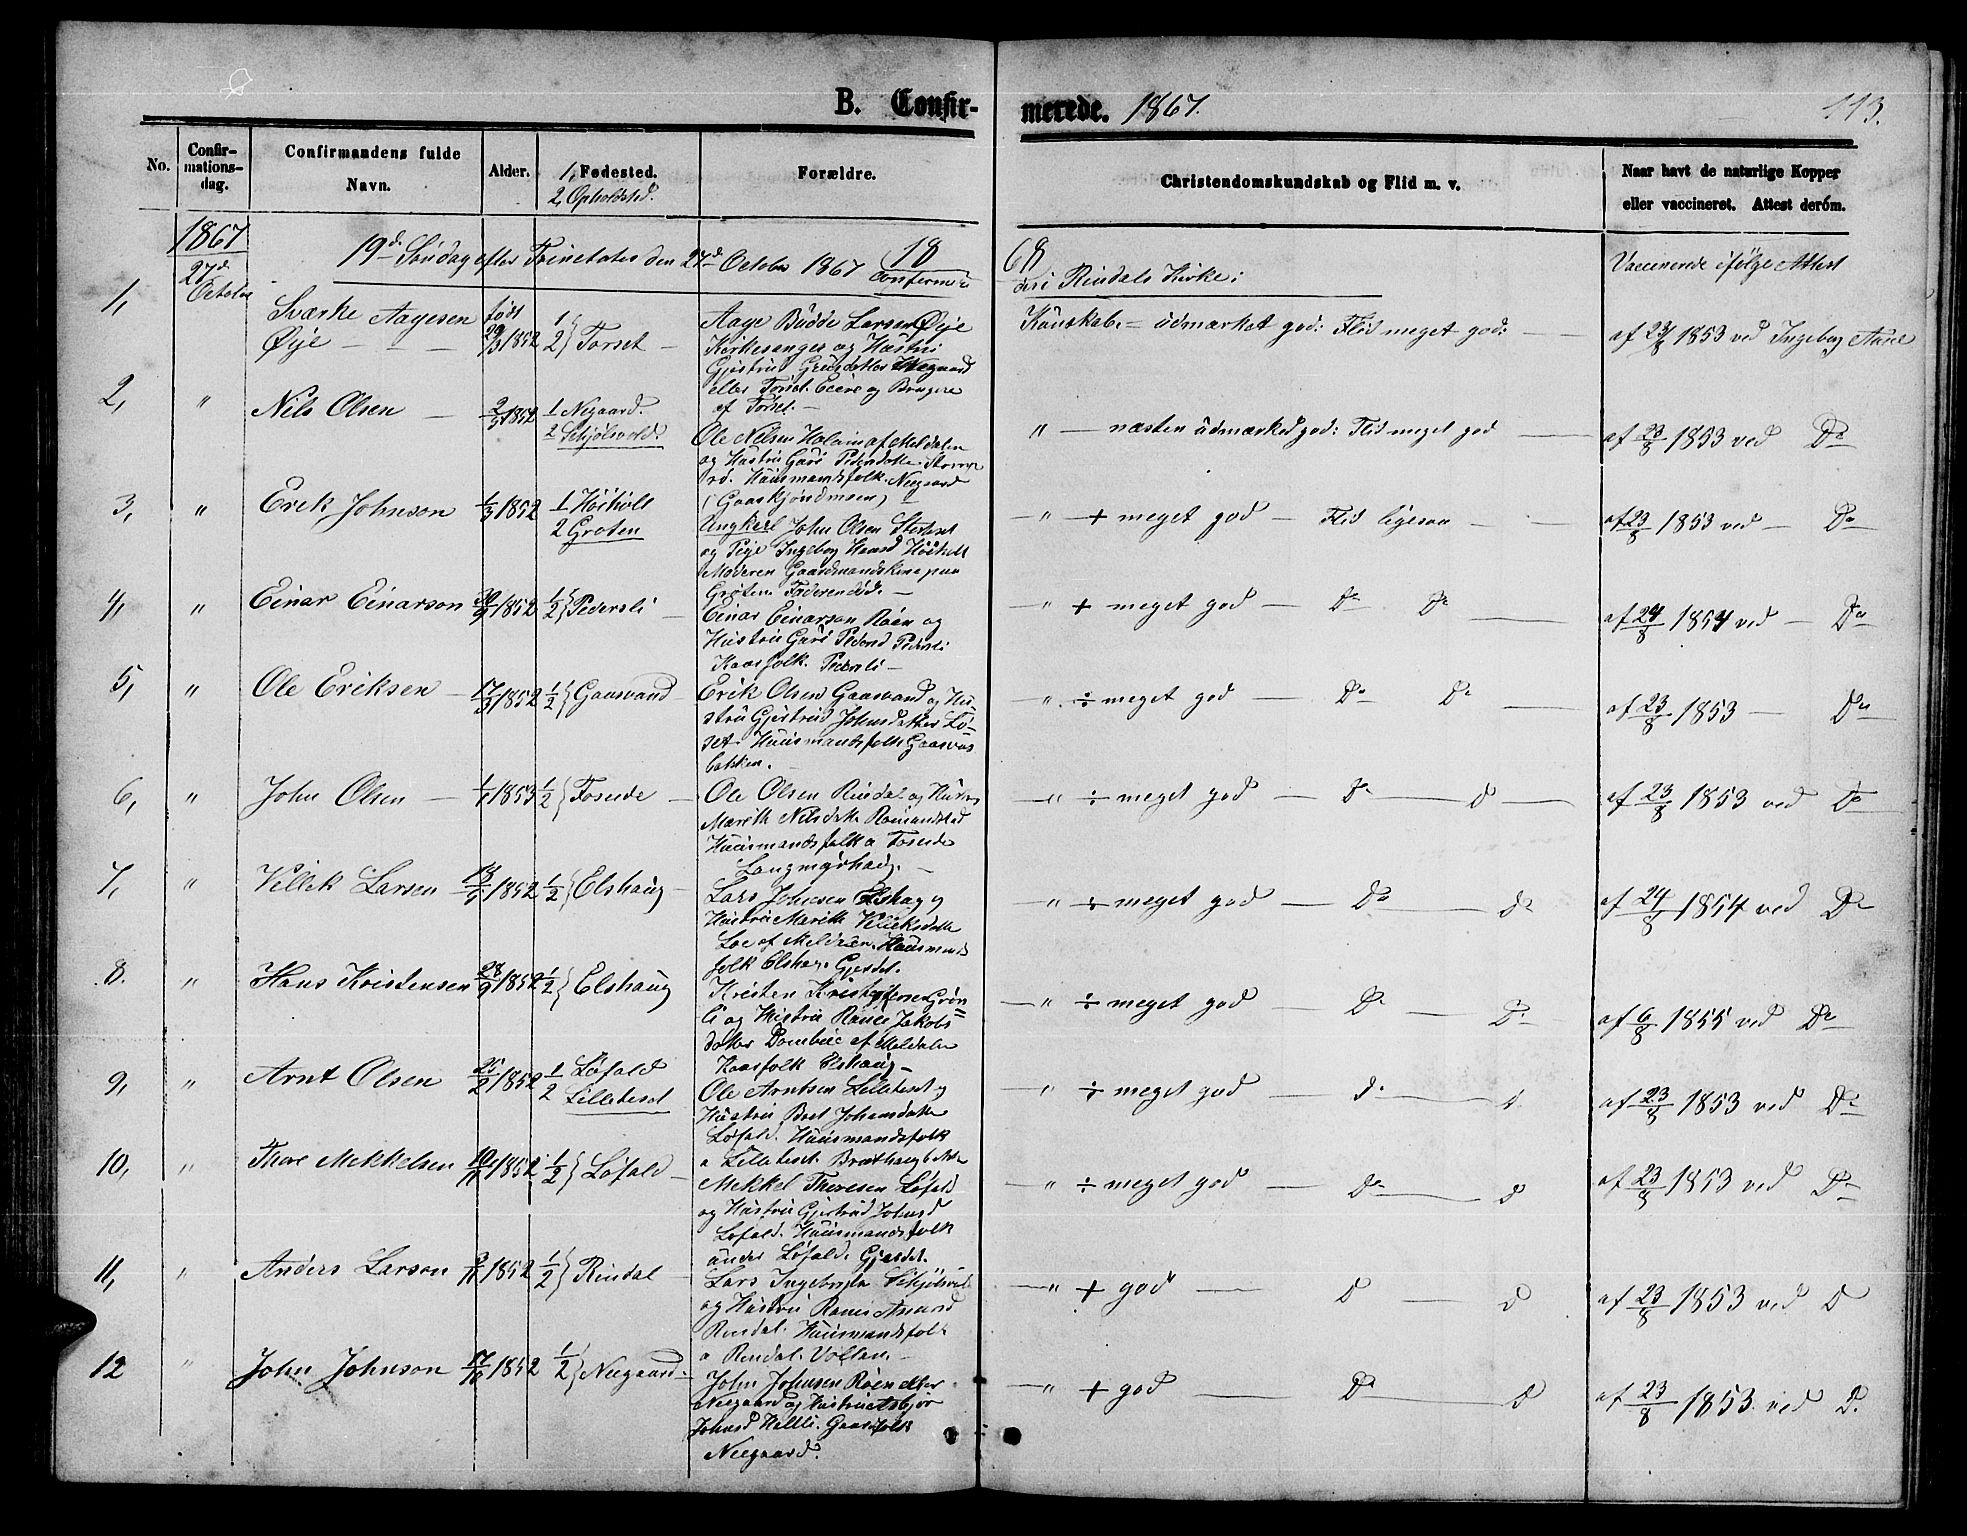 B. Confir-
merede. 1867.
113.
No.
Confir-
mations-
dag.
Confirmandens fulde
Navn.
Alder.
1, Fødested.
2, Opholdsted.
Forældre.
Christendomskundskab og Flid m. v.
Naar havt de naturlige Kopper
eller vaccineret. Attest derom.
1867
27d October
19d Søndag efter Trinitatis den 27d October 1867 18
i Rindals Kirke:
Vaccinerede ifølge Attest
1,
Sværke Aagesen
Øije
født
29/3 1852
1/2 } Torset
Aage Budde Larsen Øije
Kirkesanger og Hustru
Gjertrud
eller Torset. Eiere og Brugere
af Torset.
Kundskab = udmærket god: Flid meget god:
af 23/8 1853 ved Ingeborg
2, "
Nils Olsen
1 Negaard.
2 Skjølsvold.
Ole Nilsen Holum af Meldalen
og Hustru Guri Pedersdatter
Huusmandsfolk. Negaard
" — næsten udmærked god: Flid meget god
af 23/8 1853 ved Do
3, "
Erik Johnson
1/3 1852
1 Høiholt
2 Grøten
Ungkarl John Olsen
og Pige Ingeborg Haard Høiholt
Moderen Gaardmandskone paa
Grøten. Faderen død.
" + meget god — Flid ligesaa
af 23/8 1853 ved — Do
4, "
Einar Einarson
30/9 1852
1/2 } Pedersli
Einar Einarson Røen og
Hustru Guri Pedersd Pedersli
Kaarfolk. Pedersli
" + meget god — Do Do
af 24/8 1854 ved — Do
5, "
Ole Eriksen
17/3 1852
1/2 } Gaasvand
Erik Olsen Gaasvand og Hu-
stru Gjertrud Johnsdatter Lø-
set. Huusmandsfolk Gaasvas
bakken.
" ÷ meget god — Do Do
af 23/8 1853 — Do
6, "
John Olsen
1/1 1853
1/2 } Foseide
Ole Olsen Rindal og Hustru
Marith Nilsdatter Romundstad
Huusmandsfolk a Foseide
Langmyrhaug.
" ÷ meget god — Do — D
af 23/8 1853 ved Do
7, "
Villek Larsen
1852
1/2 } Elshaug
Lars Johnsen Elshaug
Hustru Marith Villeksdatter
Loe af Meldalen. Huusmands
folk Elshaug. Gjerdet.
" ÷ meget god — Do — do
af 24/8 1854 ved Do
8. "
Hans Kristensen
28/9 1852
1/2 } Elshaug
Kristen Kristoffersen Grøn=
li og Hustru Ranei Jakobs
datter af Meldalen
Kaarfolk Elshaug
" ÷ meget god — Do — Do
af 6/8 1855 ved Do
9, "
Arnt Olsen
1852
1 Løfald
2 Lilleteset
Ole Arntsen Lilleteset og
Hustru Beret Johnsdatter
Løfald. Huusmandsfolk
a Lilleteset.
" ÷ meget god — d.
af 23/8 1853 ved Do
10, "
Thore Mekkelsen
10/11 1852
1/2 } Løfald
Mekkel Thoresen Løfald
og Hustru Gjertrud Johnsd
Løfald. Huusmandsfolk
under Løfald. Gjerdet.
" ÷ meget god — Do — D
af 23/8 1853 ved Do
11, "
Anders Larson
1852
1/2 } Rindal
Lars Skjølsvold
og Hustru Ranei
Rindal. Huusmandsfolk
a Rindal.
" + god — D — D
af 23/8 1853 ved D
12 "
John Johnson
1852
1/2 } Neegaard
John Johnsen Røen eller
Neegaard og Hustru
Johnsd Gaardfolk
Neegaard.
" + god — Do — D
af 23/8 1853 ved D.